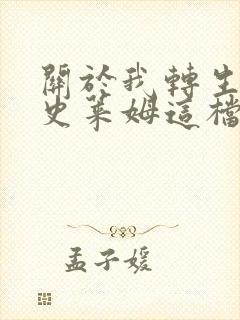 關於我轉生
史萊姆這檔
孟子媛